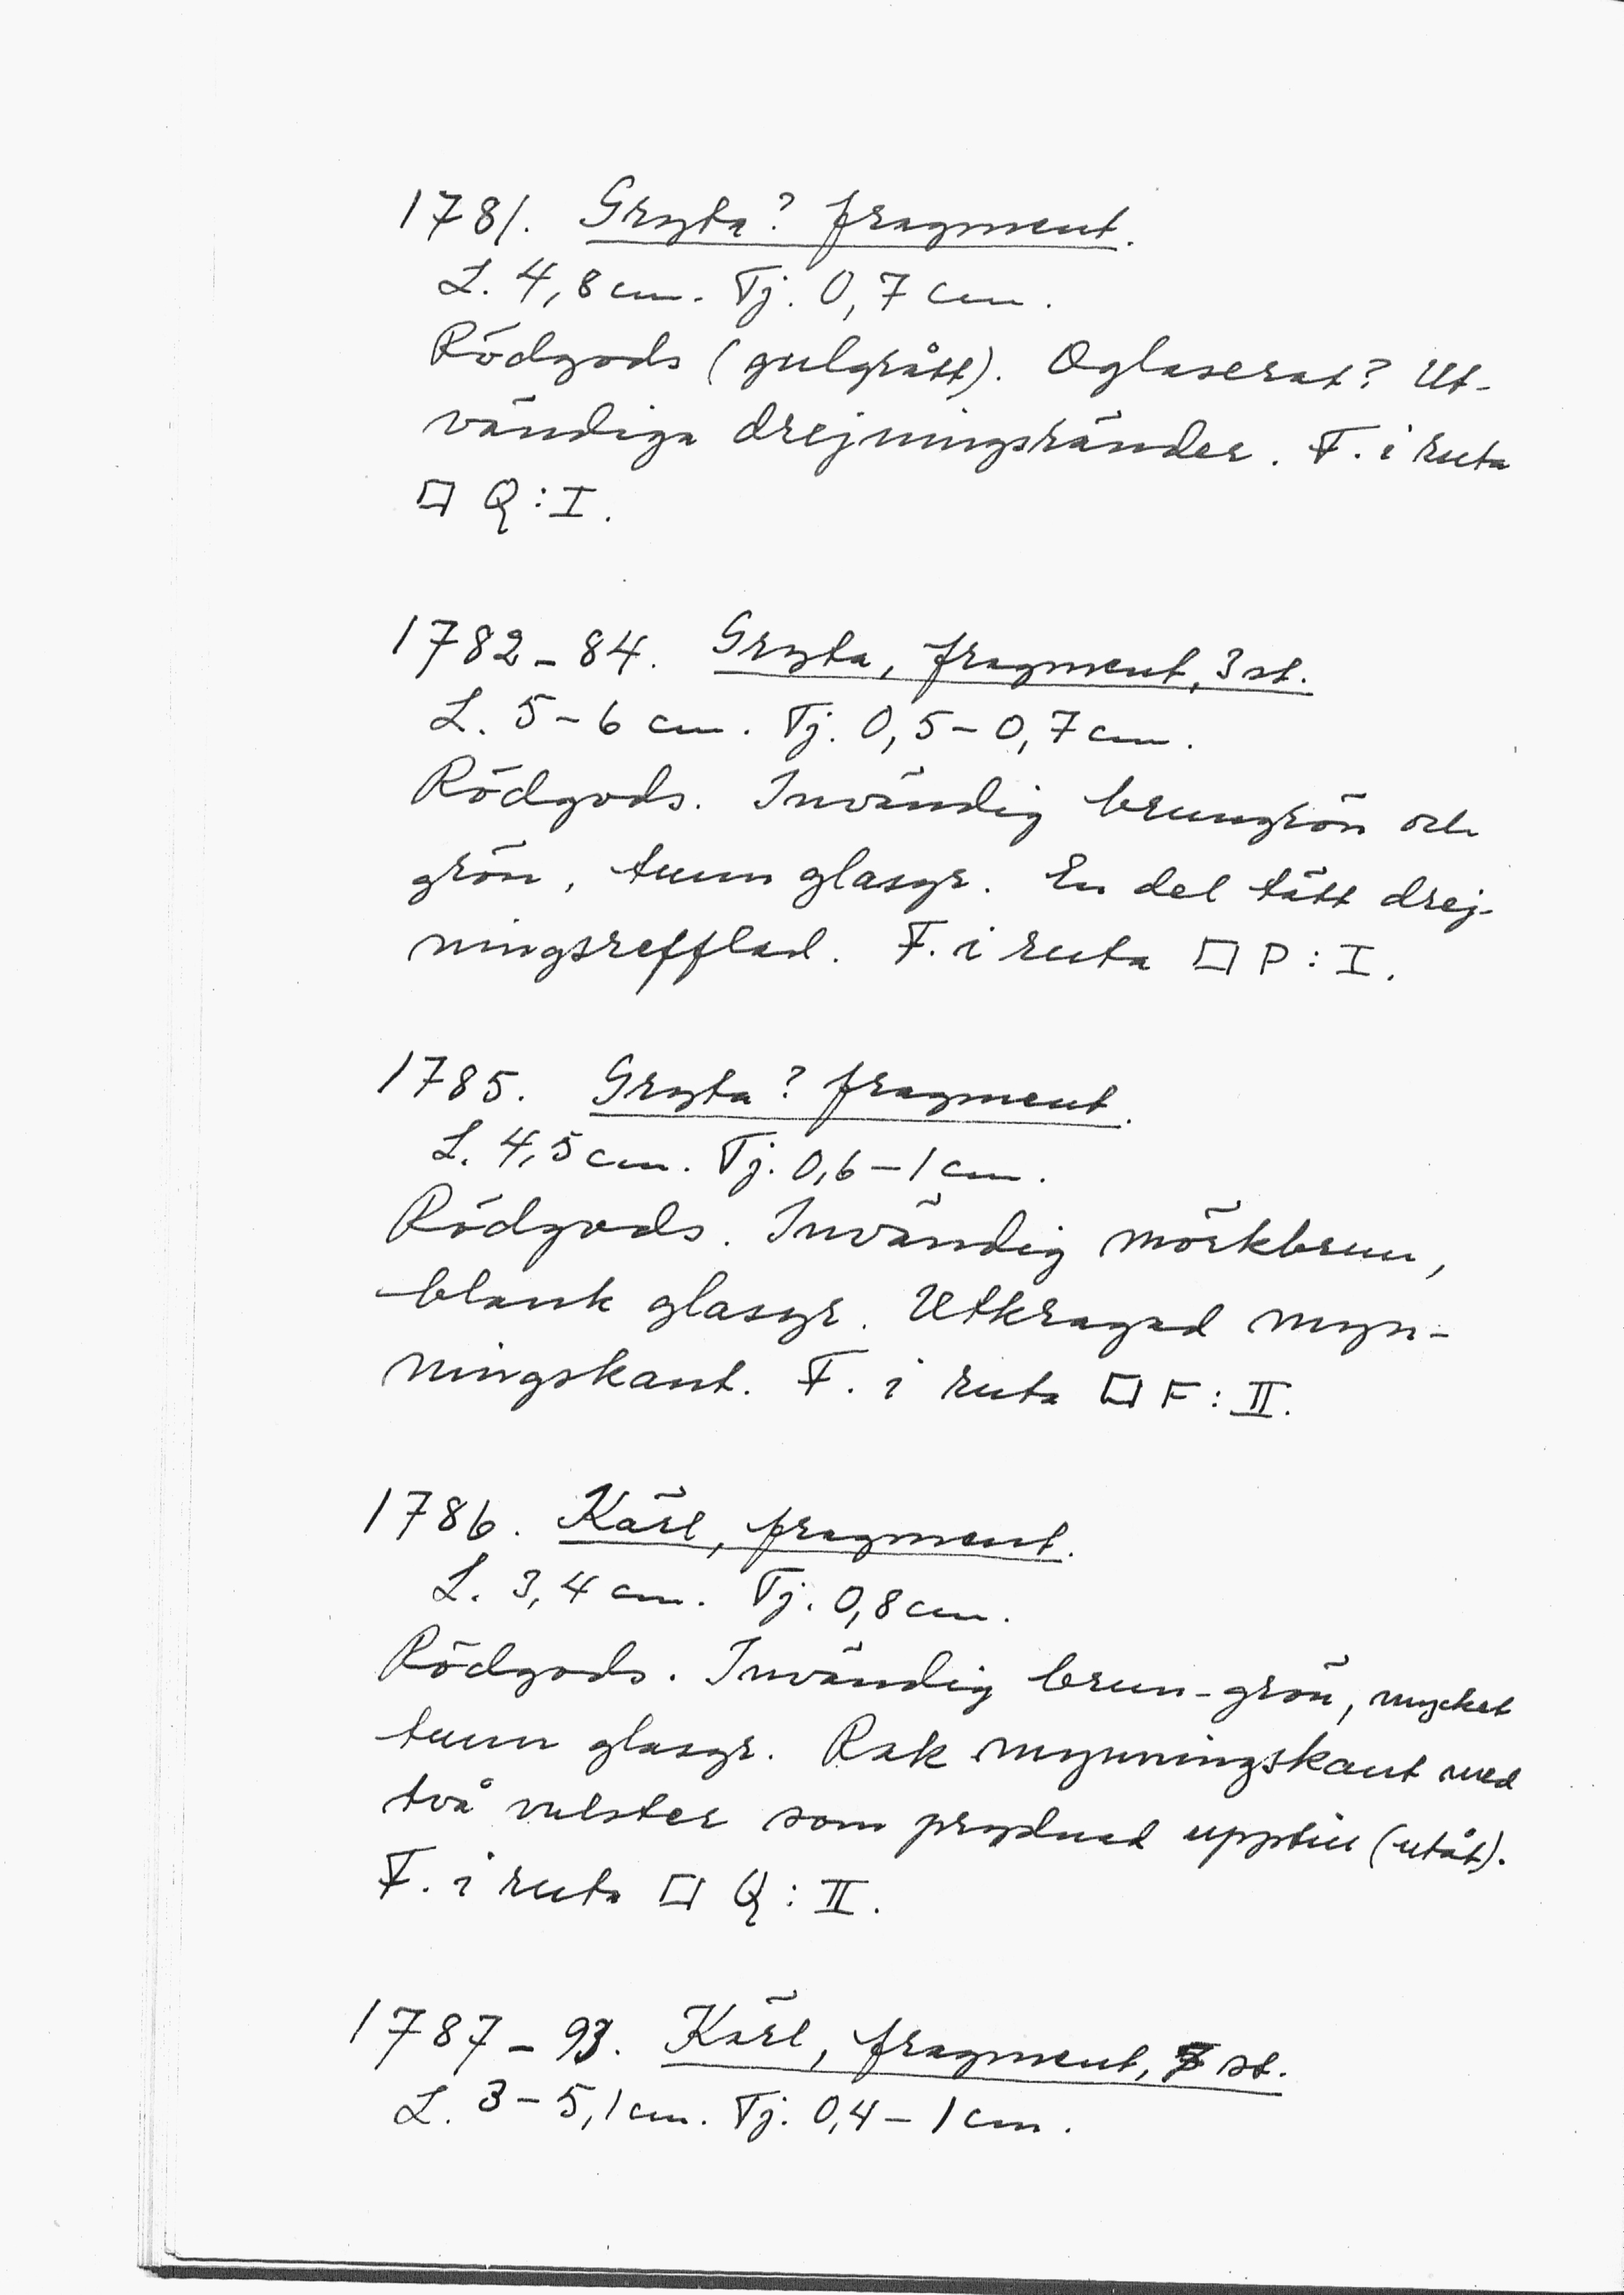 1781. Gryta? fragment.
L. 4,8 cm. Tj. 0,7 cm.
Rödgods (gulgrått). Oglaserat? Ut-
vändiga drejningsränder. F. i ruta
□ Q : I.
1782-84. Gryta, fragment, 3 st.
L. 5-6 cm. Tj. 0,5-0,7 cm.
Rödgods. Invändig brungrön och
grön, tunn glasyr. En del tätt drej-
ningsrefflad. F. i ruta □ P : I.
1785. Gryta? fragment.
L. 4,5 cm. Tj. 0,6-1 cm.
Rödgods. Invändig mörkbrun,
blank glasyr. Utkragad myn-
ningskant. F. i ruta □ F : II.
1786. Kärl, fragment.
L. 3,4 cm. Tj. 0,8 cm.
Rödgods. Invändig brun-grön, mycket
tunn glasyr. Rak mynningskant med
två vulster som prydnad upptill (utåt).
F. i ruta □ Q : II.
1787-93. Kärl, fragment, 7 st.
L. 3-5,1 cm. Tj. 0,4-1 cm.